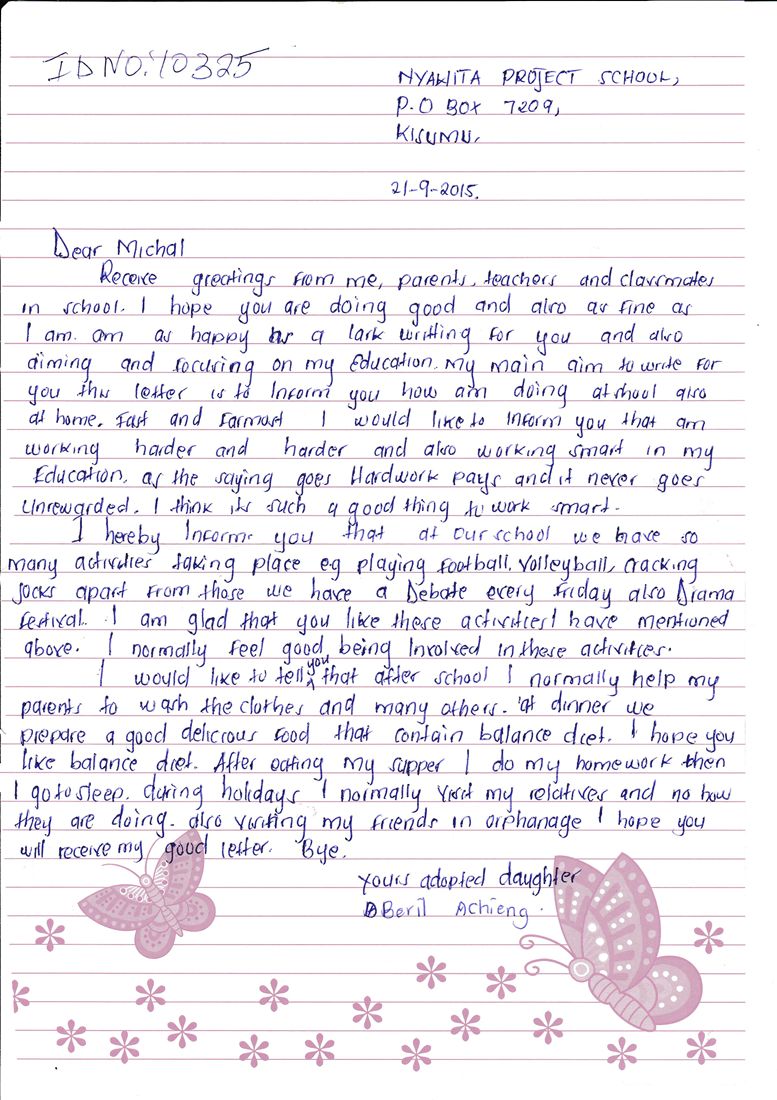 ID NO: 10325
NYAWITA PROJECT SCHOOL,
P.O BOX 7209,
KISUMU,
21-9-2015.
Dear Michal
Receive greetings from me, parents, teachers and classmates
in school. I hope you are doing good and also as fine as
I am. am as happy as a lark writting for you and also
aiming and focusing on my Education. My main aim to write for
you this letter is to Inform you how am doing at shool also
at home. Fast and Farmast I would like to Inform you that am
working harder and harder and also working smart in my
Education, as the saying goes Hardwork pays and it never goes
Unrewarded. I think its such a good thing to work smart.
I hereby Informs you that at our school we have so
many activities taking place eg playing football, Volleyball, cracking
jocks apart from those we have a Debate every Friday also Drama
festival. I am glad that you like these activities I have mentioned
above. I normally feel good being Involved in these activities.
I would like to tell you that after school I normally help my
parents to wash the clothes and many others. at dinner we
prepare a good delicious food that contain balance diet. I hope you
like balance diet. After eating my supper I do my homework then
I go to sleep. during holidays I normally visit my relatives and no how
they are doing. also visiting my friends in orphanage I hope you
will receive my good letter. Bye.
Yours adopted daughter
Beril Achieng.